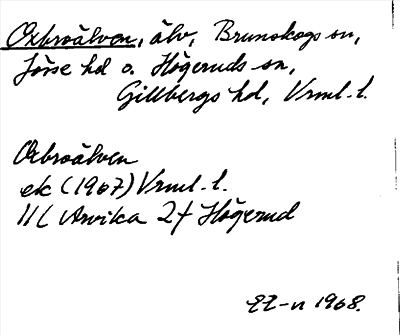 Oxbroälven, älv, Brunskogs sn,
Jösse hd o. Högeruds sn,
Gillbergs hd, Vrml. l.
Oxbroälven
ek (1967) Vrml. l.
11C Arvika 2f Högerud
EZ-n 1968.